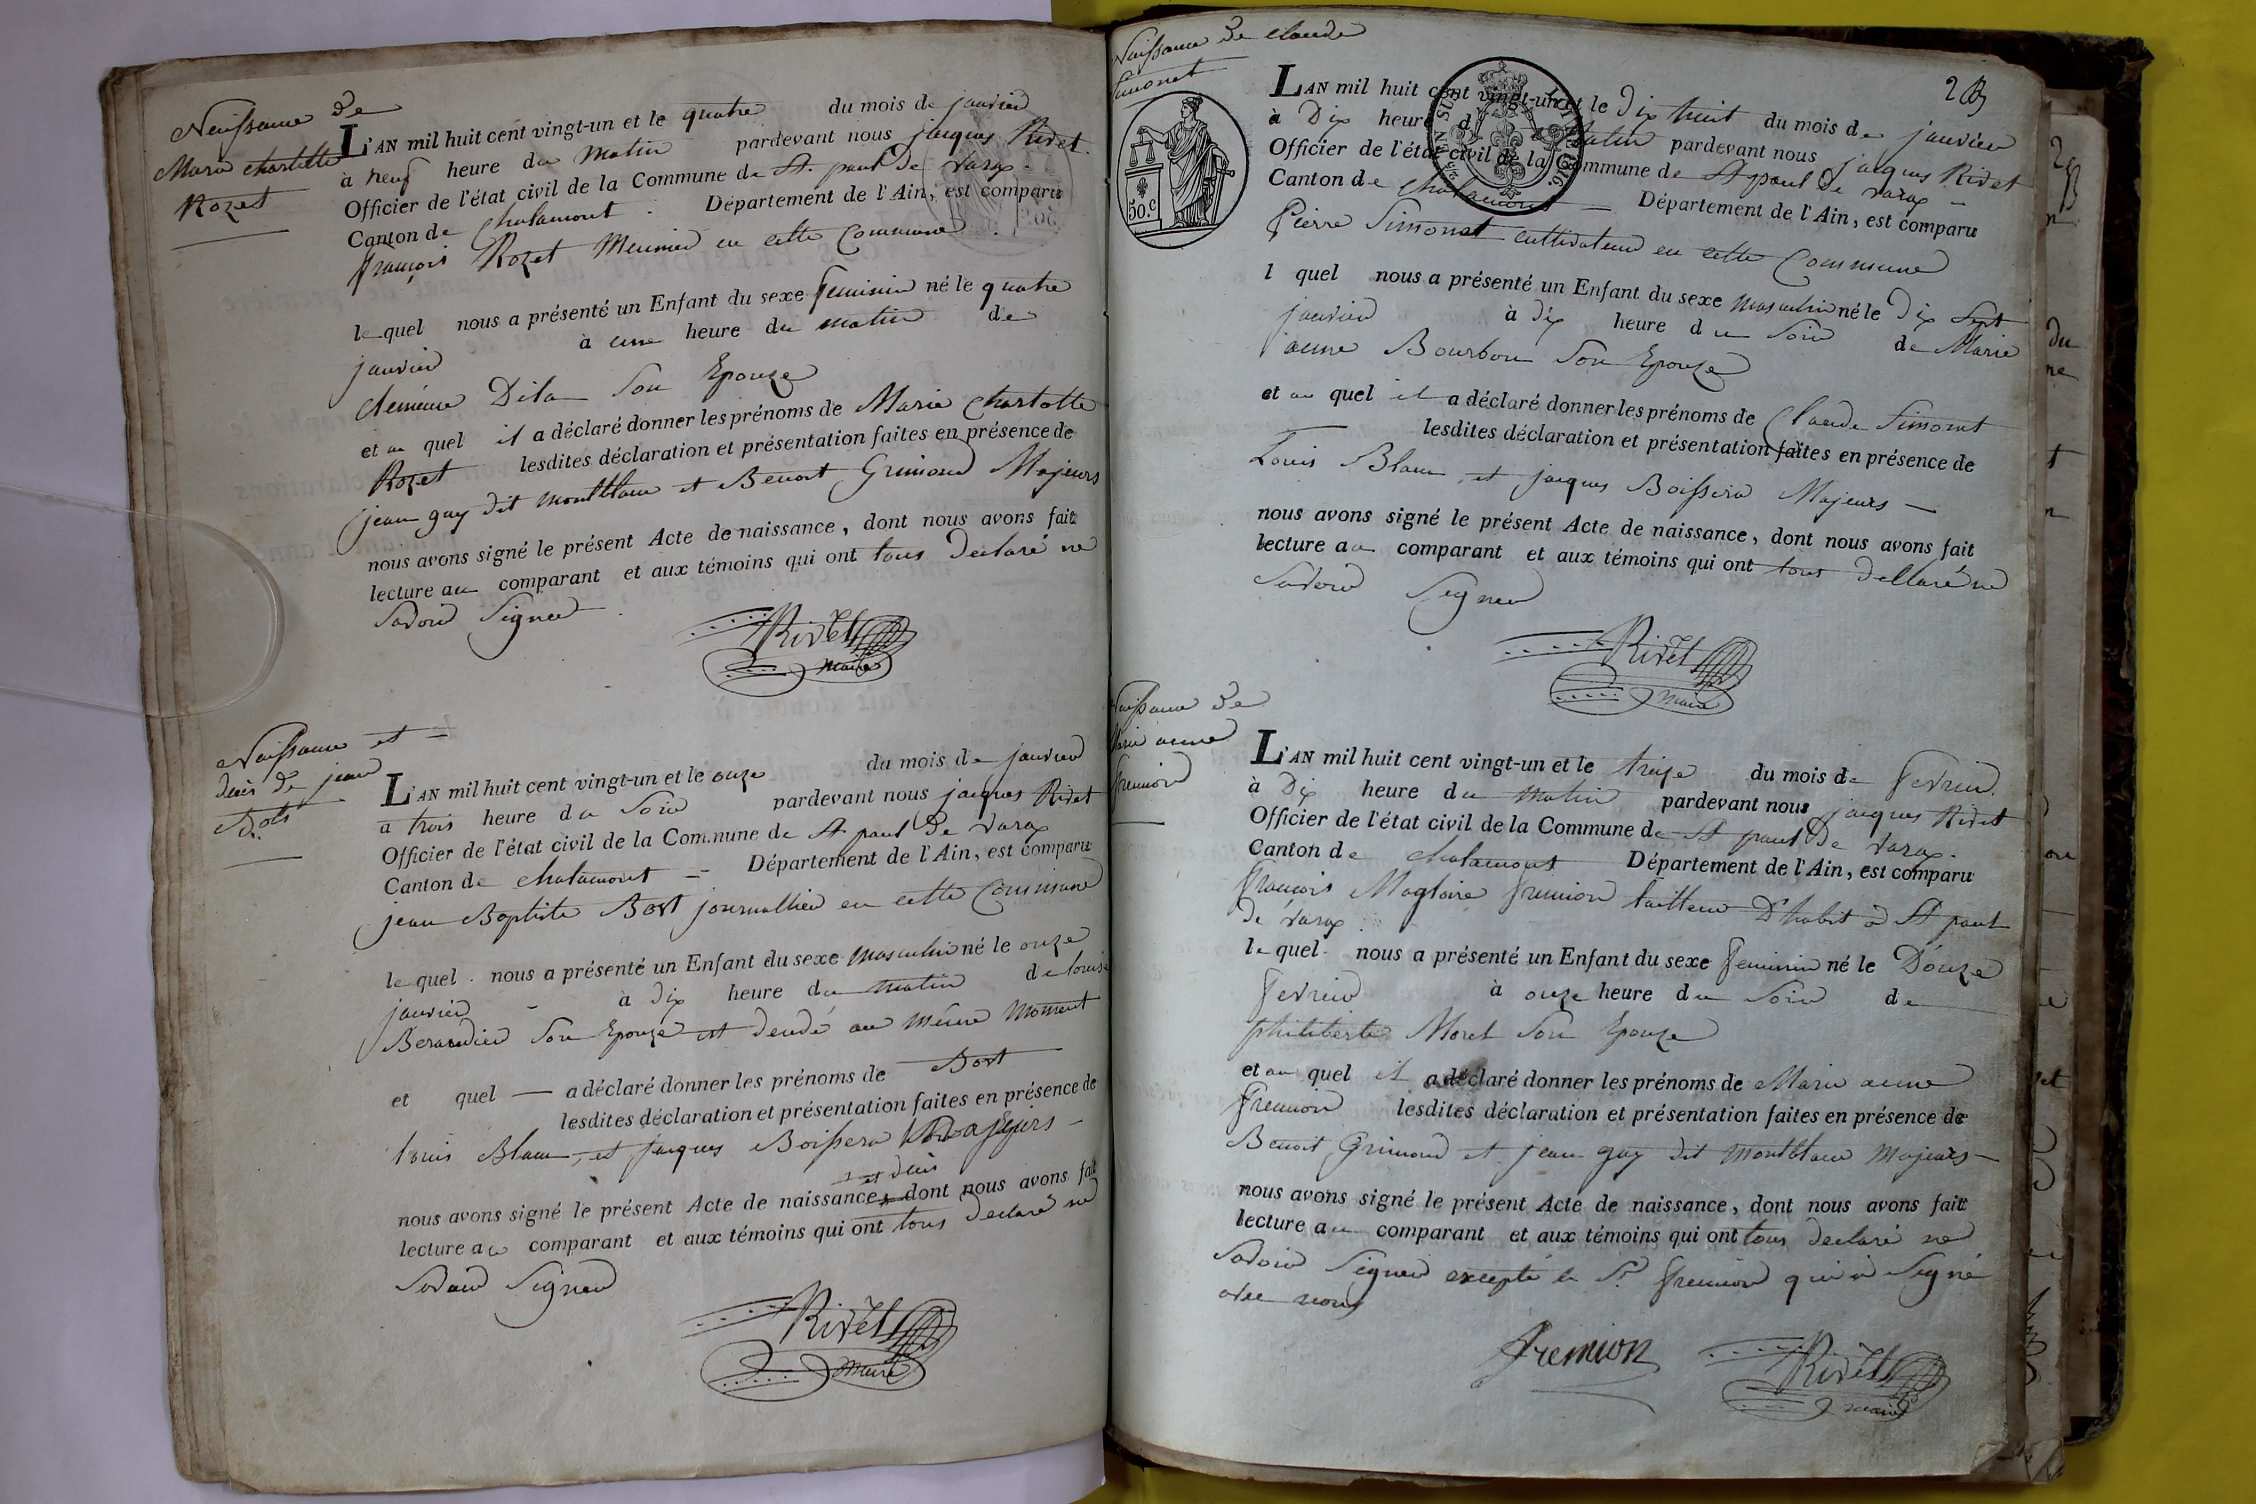 Naissance de
Marie charlotte
Rozet
L'AN mil huit cent vingt-un et le quatre du mois de janvier
à neuf heure du matin pardevant nous jacques Rivet
Officier de l'état civil de la Commune de St paul de varax
Canton de Chalamont Département de l'Ain, est comparu
françois Rozet Meunier en cette Commune
lequel nous a présenté un Enfant du sexe feminin né le quatre
janvier à une heure du matin de
clemence Dila son Epouze
et au quel il a déclaré donner les prénoms de Marie charlotte
Rozet lesdites déclaration et présentation faites en présence de
jean guy dit montblanc et Benoit Grimond Majeurs
nous avons signé le présent Acte de naissance, dont nous avons fait
lecture au comparant et aux témoins qui ont tous declaré ne
Savoir Signer
Rivet
maire
Naissance et
décès de jean
L'AN mil huit cent vingt-un et le onze du mois de janvier
à trois heure du Soir pardevant nous jacques Rivet
Officier de l'état civil de la Commune de St paul de varax
Canton de chalamont Département de l'Ain, est comparu
jean Baptiste Bort journallier en cette Commune
lequel nous a présenté un Enfant du sexe masculin né le onze
janvier à dix heure du matin de louise
Berardier Son Epouze et deudé au même moment
et quel — a déclaré donner les prénoms de Bort
lesdites déclaration et présentation faites en présence de
louis Blanc, et jacques Boissera Majeurs —
et décis
nous avons signé le présent Acte de naissance, dont nous avons fait
lecture au comparant et aux témoins qui ont tous declaré ne
Savoir Signer
Rivet
maire
Naissance de Claude
Simonet
2
50.c
L'AN mil huit cent vingt-un et le Dix huit du mois de janvier
à Dix heure du matin pardevant nous jacques Rivet
Officier de l'état civil de la Commune de St paul de varax —
Canton de Chalamont — Département de l'Ain, est comparu
Pierre Simonet cultivateur en cette Commune
l quel nous a présenté un Enfant du sexe masculin né le Dix Sept
janvier à dix heure du Soir de Marie
anne Bourbon Son Epouze
et au quel il a déclaré donner les prénoms de Claude Simonet
lesdites déclaration et présentation faites en présence de
Louis Blanc, et jacques Boissera Majeurs —
nous avons signé le présent Acte de naissance, dont nous avons fait
lecture au comparant et aux témoins qui ont tous dellaré ne
Savoir Signer
Rivet
maire
Naissance de
Marie anne
fremion
L'AN mil huit cent vingt-un et le treize du mois de fevrier
à Dix heure du matin pardevant nous jacques Rivet
Officier de l'état civil de la Commune de St paul de varax.
Canton de chalamont Département de l'Ain, est comparu
françois Magloire fremion tailleur D'habit à St paul
de varax
lequel nous a présenté un Enfant du sexe feminin né le Douze
fevrier à onze heure du Soir de
philiberte Morel Son Epouze
et au quel il a déclaré donner les prénoms de Marie anne
fremion lesdites déclaration et présentation faites en présence de
Benoit Grimond et jean guy dit montblanc majeurs —
nous avons signé le présent Acte de naissance, dont nous avons fait
lecture au comparant et aux témoins qui ont tous declaré ne
Savoir Signer excepté le Sr. fremion qui a Signé
avec nous
fremion
Rivet
maire